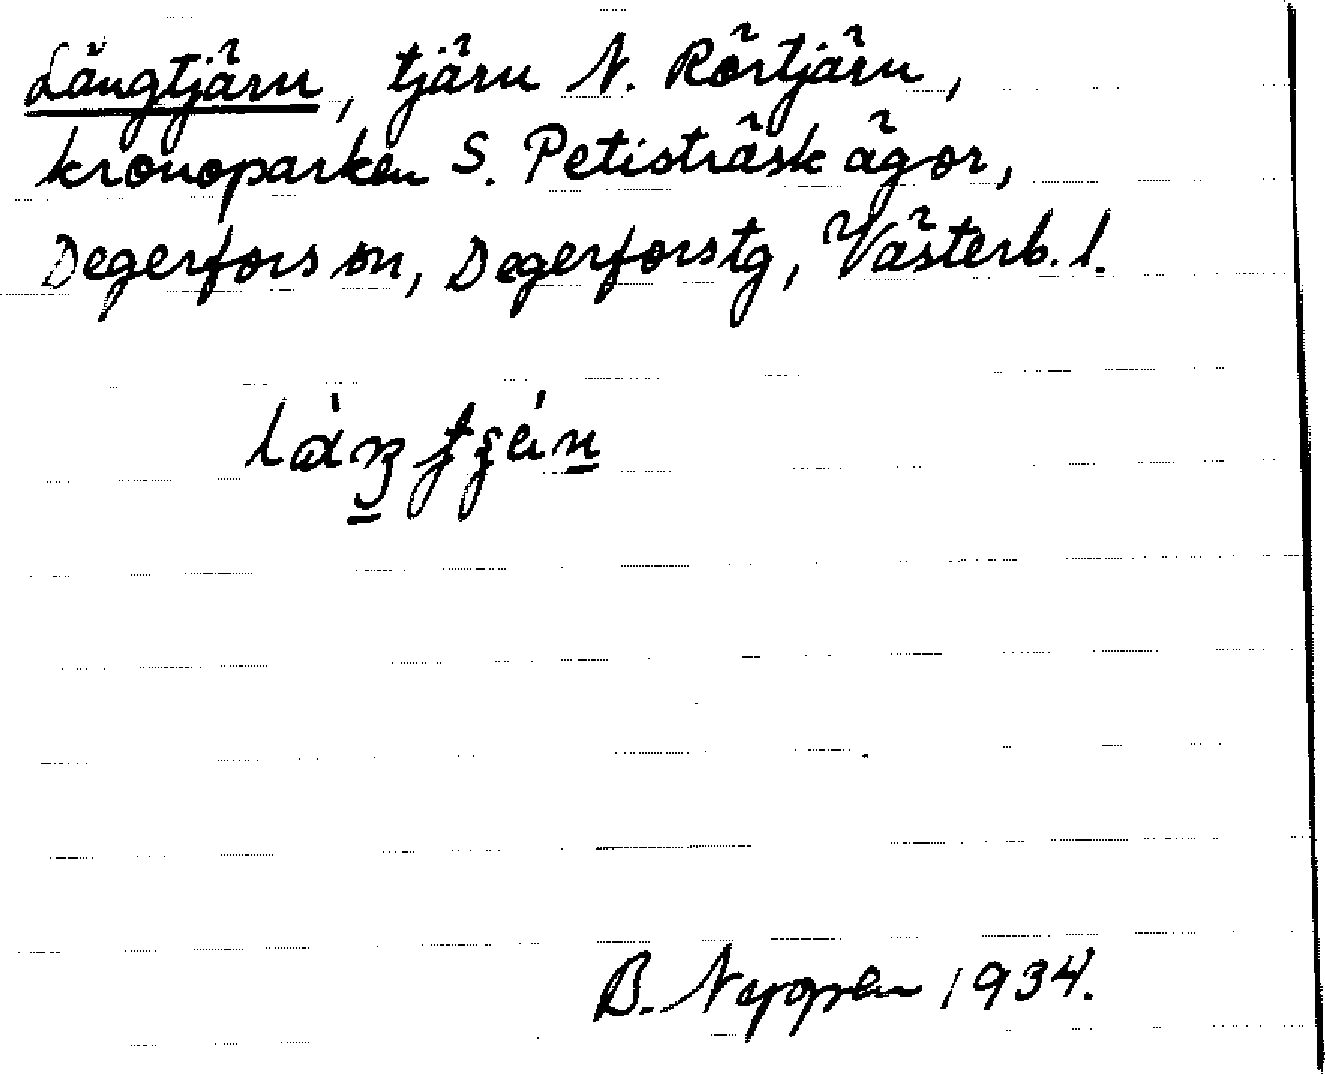 Långtjärn, tjärn N. Rörtjärn,
kronoparken S. Petisträsk ägor,
Degerfors sn, Degerfors tg, Västerb. l.
B. 1934.